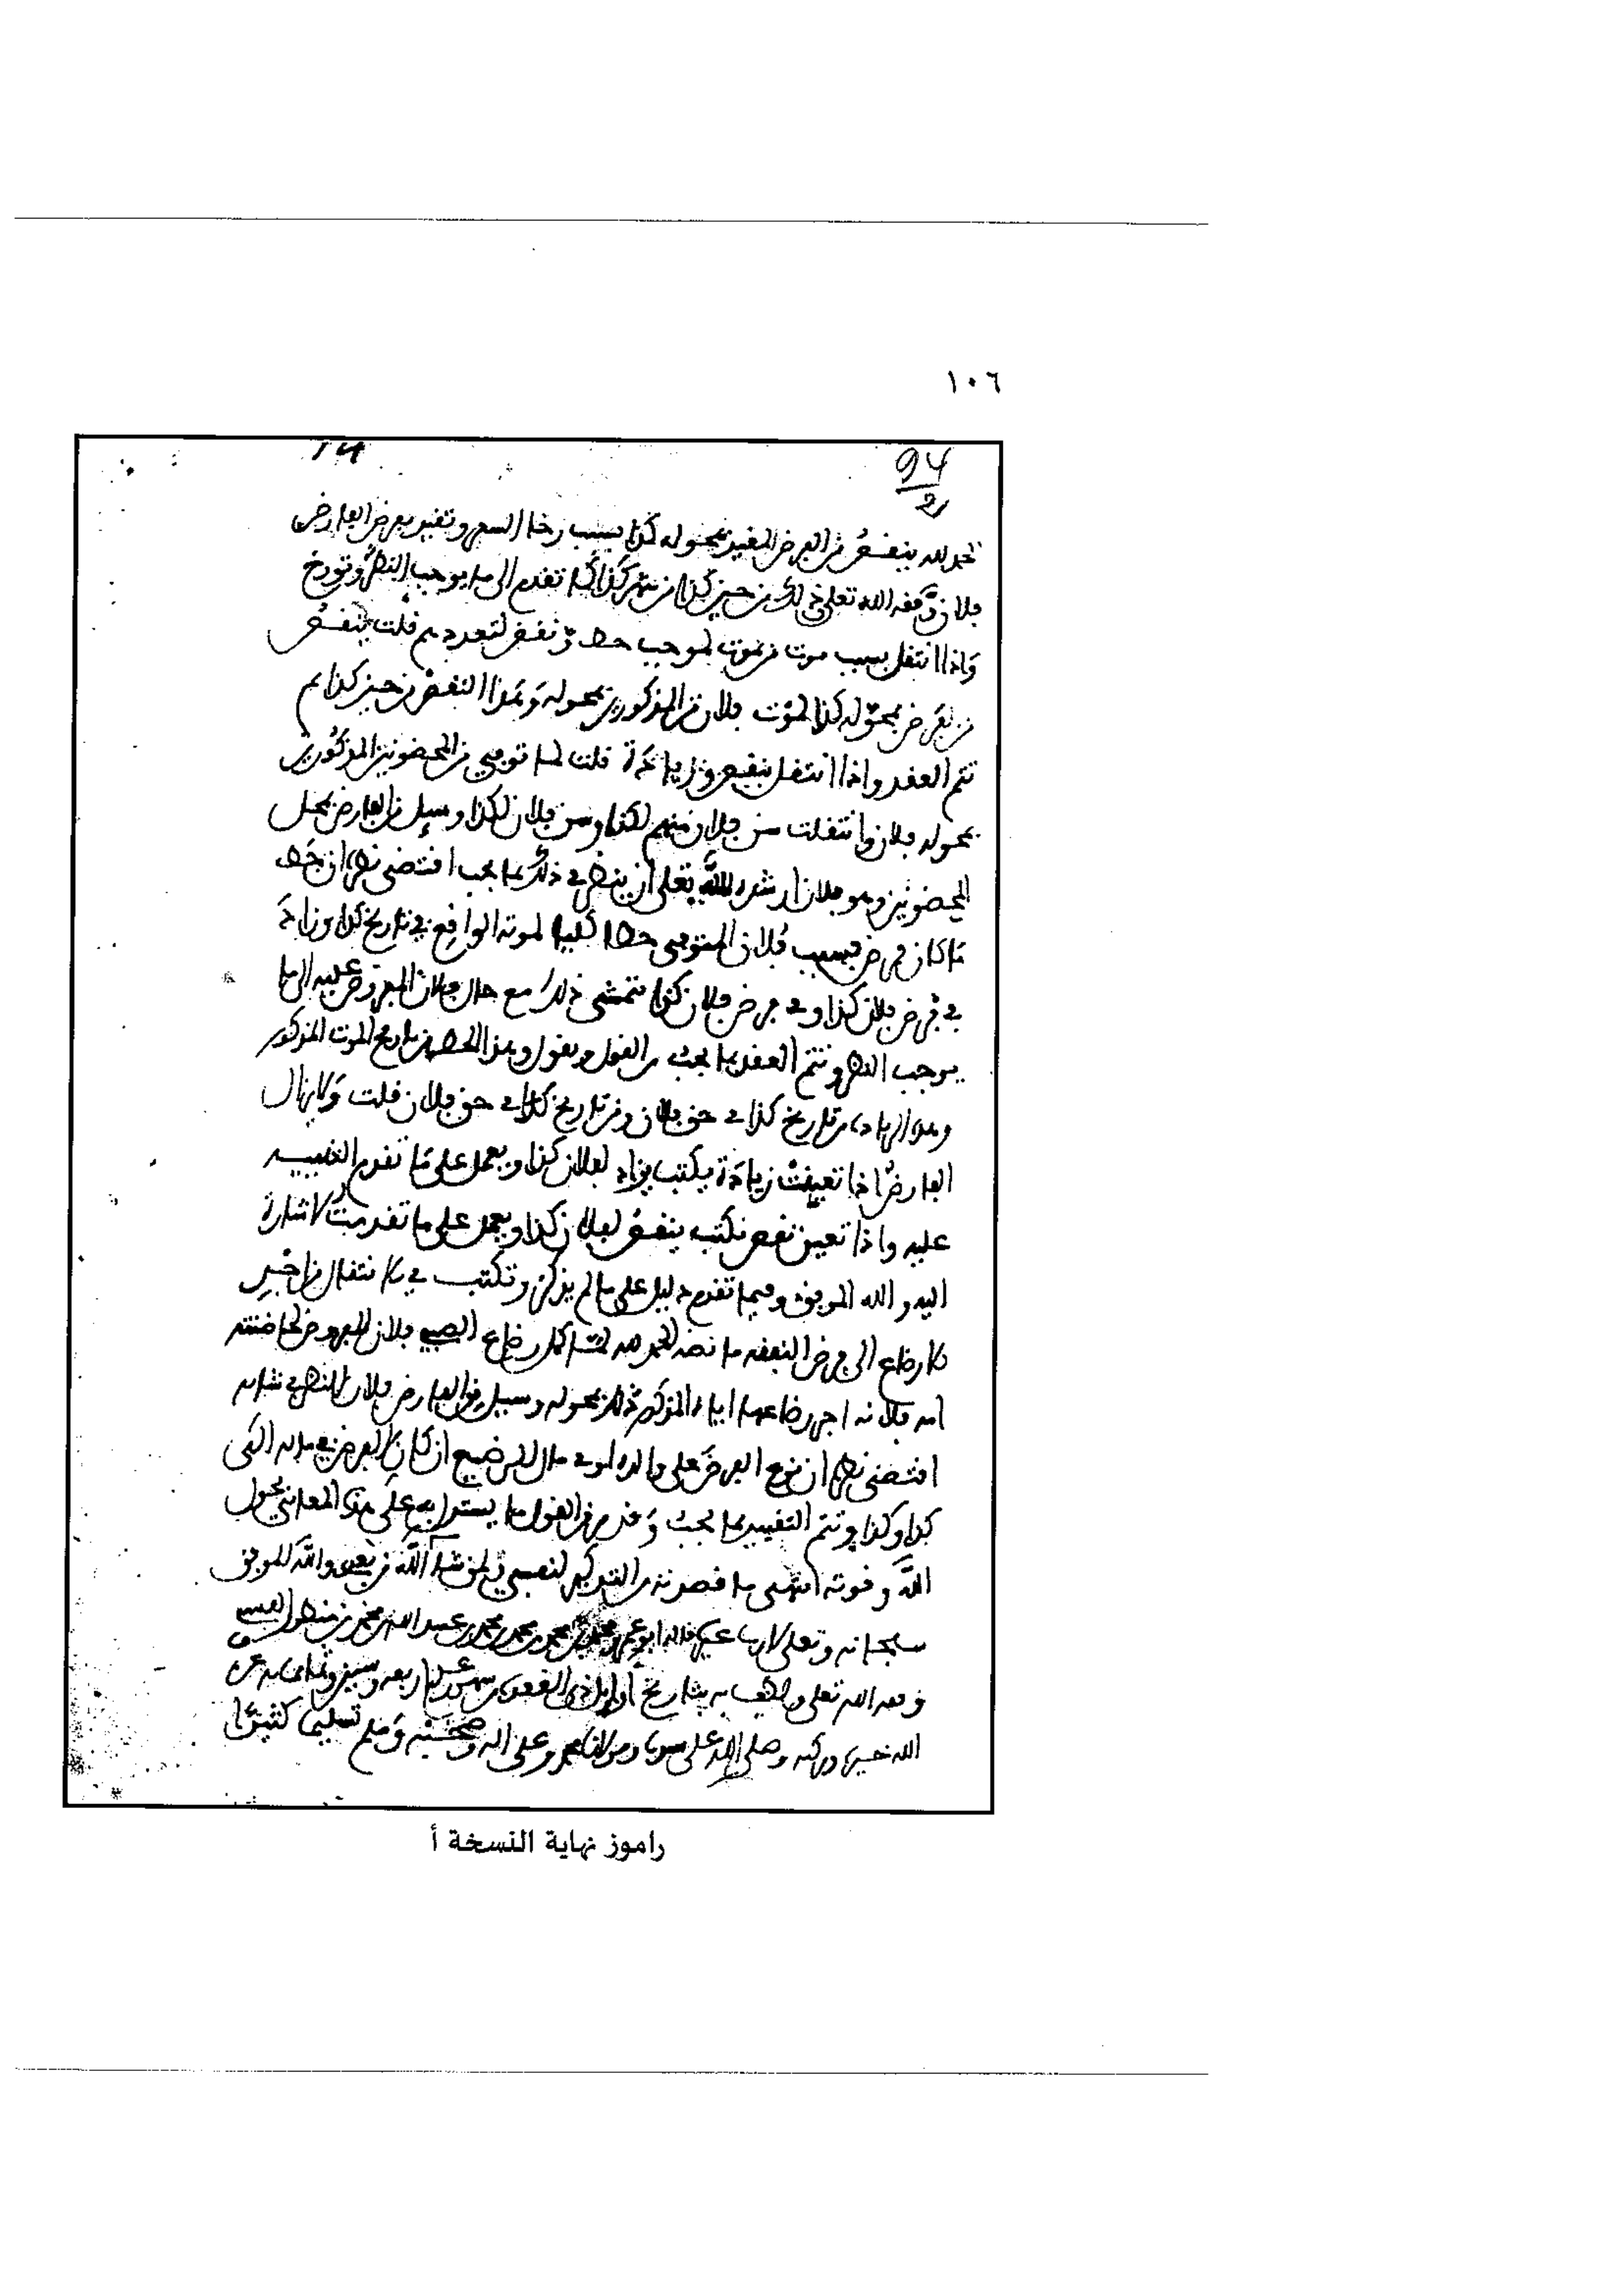 ١٠٦
94
2
الحمد لله ينقص من الفرض المقيد بمحوله كذا بسبب رخا السعر وتغير بعرض الفارض
فلان وفقه الله تعلى ذلك من حين كذا من شهر كذا كما تقدم الى ما يوجب النظر وتورخ
واذا انتقل بسبب موت من يموت لموجب حط ونقض لتعددهم قلت ينقص
من فرض بمحوله كذا لموت فلان من المذكورين بمحوله وهذا النقص من حين كذا ثم
تتم العقد واذا انتقل بنقص وزيادة قلت لما توفي من المحضونين المذكورين
بمحوله فلان وانتقلت سن فلان منهم لكذا وسن فلان لكذا وسيل من الفارض بمحل
المحضونين وهو فلان ارشده الله تعلى ان ينظر في ذلك بما يجب اقتضى نظره ان حط
ما كان فرض بسبب فلان المتوفى حطا كليا لموته الواقع في تاريخ كذا وزاد
في فرض فلان كذا وفي فرض فلان كذا يتمشى ذلك مع حال فلان المفروض عليه الى ما
يوجب النظر وتتم العقد بما يجب من القول ويقول وهذا الحط من تاريخ الموت المذكور
وهذه الزيادة من تاريخ كذا في حق فلان ومن تاريخ كذا في حق فلان قلت ولا يزال
الفارض اذا تعينت زيادة يكتب يزاد لفلان كذا ويعمل على ما تقدم التنبيه
عليه واذا تعين نقص نكتب ينقص لفلان كذا ويعمل على ما تقدمت الاشارة
اليه والله الموفق وفيما تقدم دليل على ما لم يذكر وتكتب في الانتقال من اجر
الارضاع الى فرض النفقة ما نصه الحمد لله لما كمل رضاع الصبي فلان المفروض لحاضنته
امه فلانة اجر رضاعها اياه المذكور ذلك بمحوله وسيل من الفارض فلان النظر في شانه
اقتضى نظره ان فرض على والده او في مال الرضيع ان كان الفرض في ماله الكي
كذا وكذا وتتم التقييد بما يجب وقد مر من القول ما يستدل به على هذه المعاني بحول
الله وقوته انتهى ما قصدته من التذكير لنفسي ولمن شا الله من بعدى والله الموفق
سبحانه وتعلى لارب غيره قاله محمد بن محمد بن عبد الله بن منظور القيسي
وفقه الله تعلى ولطف به بتاريخ اوايل ذى القعدة من عام اربعة وستين وثمانى ماية عرف
الله خيره وبركته وصلى الله على سيدنا ومولانا محمد وعلى اله وصحبه وسلم تسليما كثيرا
راموز نهاية النسخة أ